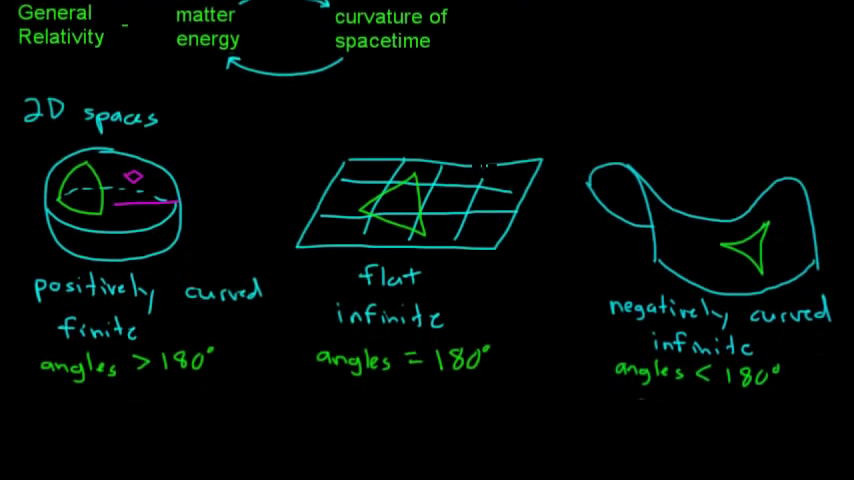 General matter curvature of
Relativity - energy spacetime
2D spaces
positively curved
finite
angles > 180°
flat
infinite
angles = 180°
negatively curved
infinite
angles < 180°